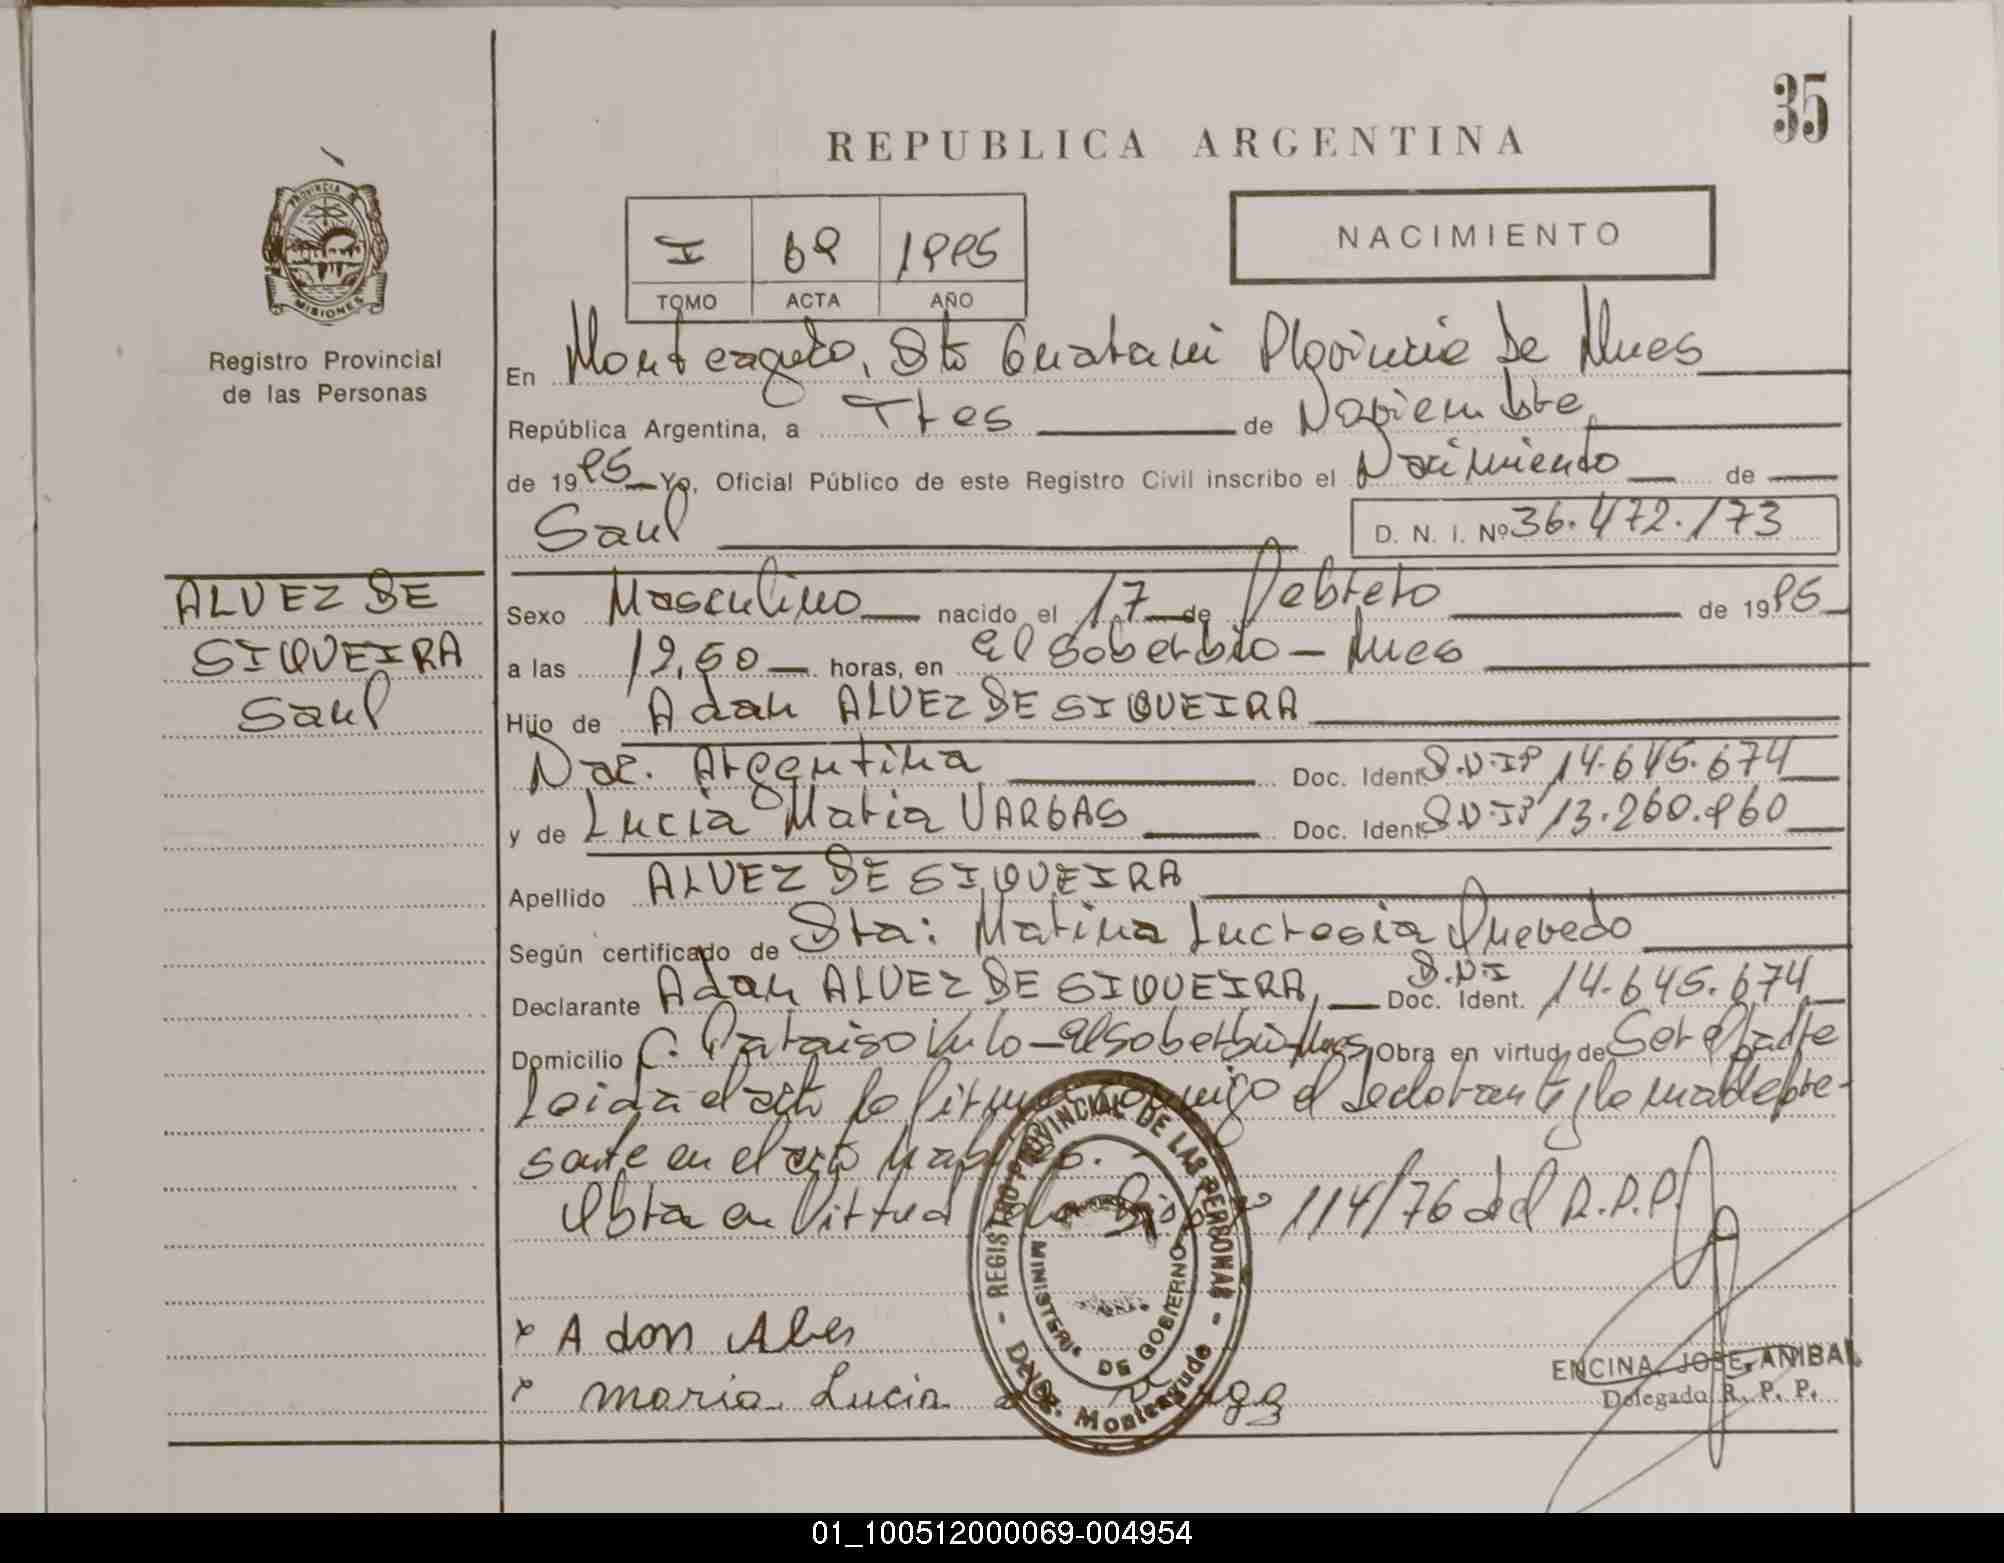 35
REPUBLICA ARGENTINA
PROVINCIA DE
MISIONES
Registro Provincial
de las Personas
I 69 1995
TOMO ACTA AÑO
NACIMIENTO
En Monteagudo, Dto Guaraní Provincia de Mnes
República Argentina, a Tres de Noviembre
de 1995 Yo, Oficial Público de este Registro Civil inscribo el Nacimiento de
Saul D. N. I. Nº 36.472.173
ALVEZ DE
SIQUEIRA
Saul
Sexo Masculino nacido el 17 de Febrero de 1995
a las horas, en El Soberbio - Mnes
Hijo de Adan ALVEZ DE SIQUEIRA
Nac. Argentina Doc. Ident. D.N.Iº 14.645.674
y de Lucia Maria VARGAS Doc. Ident. D.N.Iº 13.260.960
Apellido ALVEZ DE SIQUEIRA
Según certificado de Sra: Marina Lucresia Quevedo
Declarante Adan ALVEZ DE SIQUEIRA, Doc. Ident. D.N.I 14.645.674
Domicilio C. Paraiso - El Soberbio Mnes Obra en virtud de Ser el padre
Leida el acta la firman conmigo el declarante y la madre pre-
sente en el acto
Obra en Virtud de la Disp. Nº 114/76 del R.P.P.
REGISTRO PROVINCIAL DE LAS PERSONAS
MINISTERIO DE GOBIERNO
Deleg. Monteagudo
x Adon Alves
x Maria Lucia
ENCINA JOSE ANIBAL
Delegado R. P. P.
01_100512000069-004954